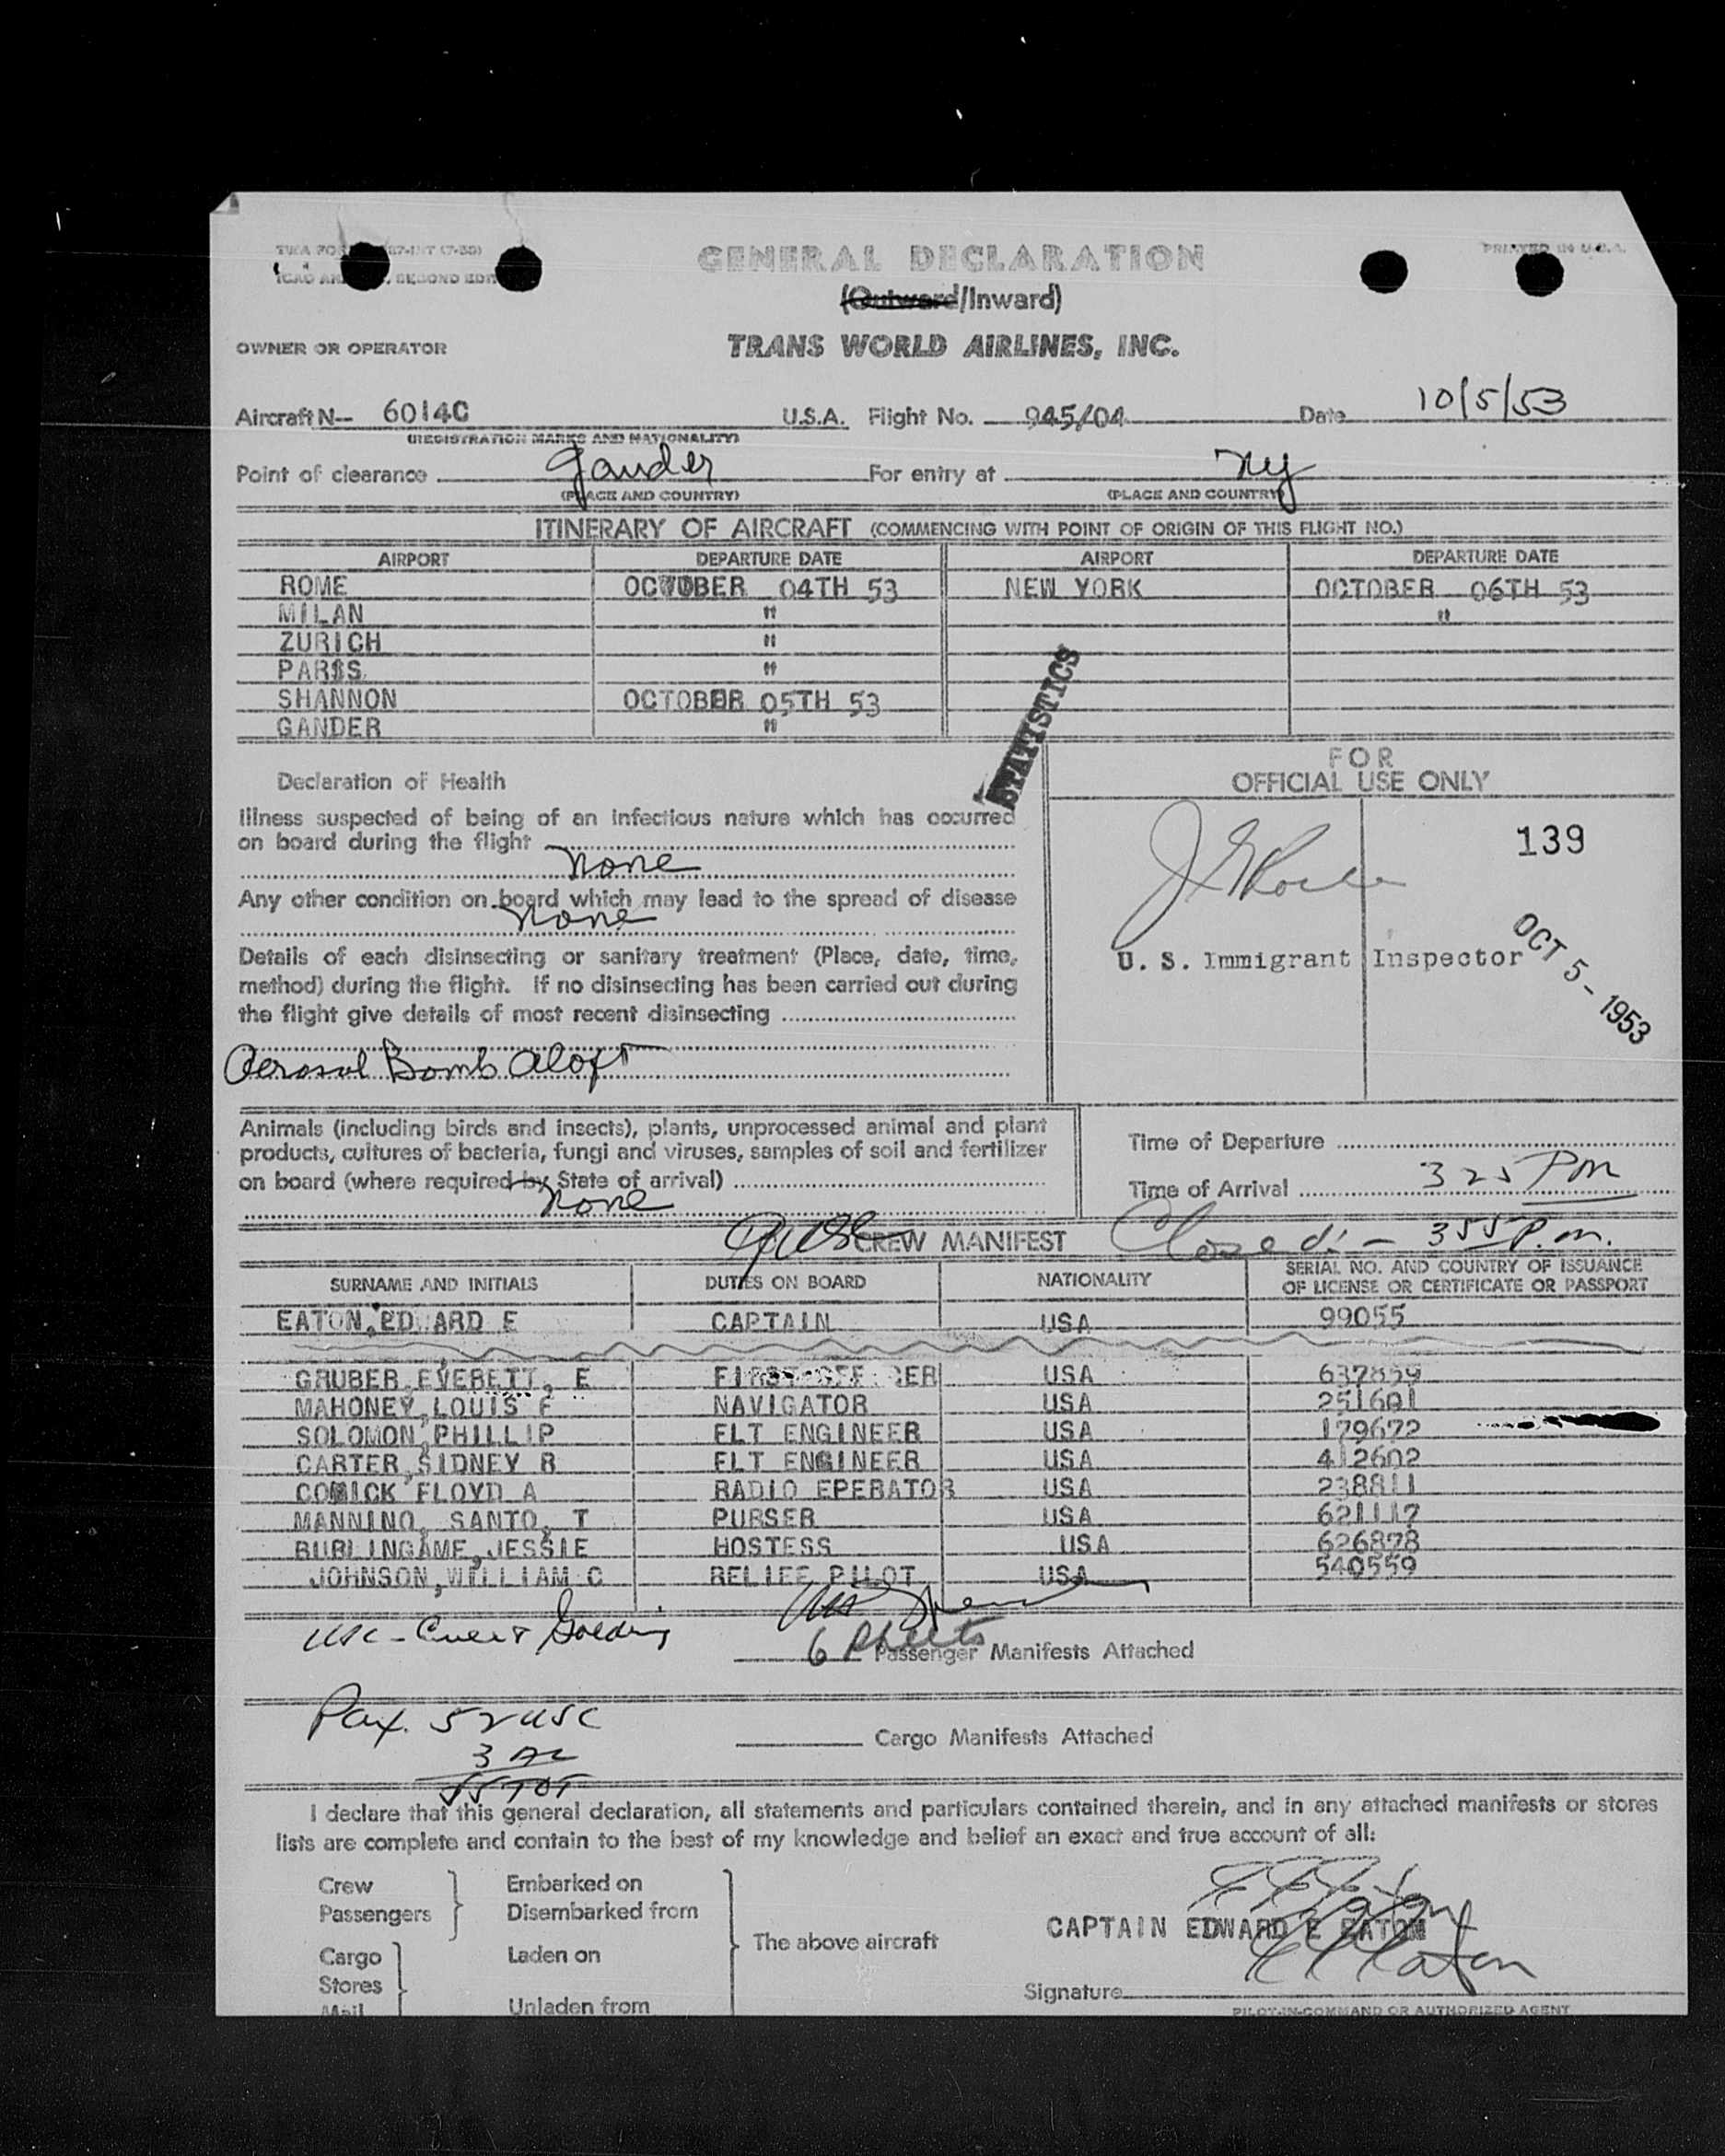 GENERAL DECLARATION
PRINTED IN U.S.A.
SECOND
(Outward/Inward)
OWNER OR OPERATOR TRANS WORLD AIRLINES, INC.
Aircraft N-- 6014C U.S.A. Flight No. 945/04 Date 10/5/53
(REGISTRATION MARKS AND NATIONALITY)
Point of clearance Gander For entry at NY
(PLACE AND COUNTRY) (PLACE AND COUNTRY)
ITINERARY OF AIRCRAFT (COMMENCING WITH POINT OF ORIGIN OF THIS FLIGHT NO.)
AIRPORT DEPARTURE DATE AIRPORT DEPARTURE DATE
ROME OCTOBER 04TH 53 NEW YORK OCTOBER 06TH 53
MILAN " "
ZURICH "
PARIS "
SHANNON OCTOBER 05TH 53
GANDER "
STATISTICS
Declaration of Health
Illness suspected of being of an infectious nature which has occurred
on board during the flight
none
Any other condition on board which may lead to the spread of disease
none
Details of each disinsecting or sanitary treatment (Place, date, time,
method) during the flight. If no disinsecting has been carried out during
the flight give details of most recent disinsecting
Aerosol Bomb aloft
FOR
OFFICIAL USE ONLY
139
U. S. Immigrant Inspector
OCT 5 - 1953
Animals (including birds and insects), plants, unprocessed animal and plant
products, cultures of bacteria, fungi and viruses, samples of soil and fertilizer
on board (where required by State of arrival)
none
Time of Departure
Time of Arrival 325 PM
CREW MANIFEST Closed:- 355 P.m.
SURNAME AND INITIALS DUTIES ON BOARD NATIONALITY SERIAL NO. AND COUNTRY OF ISSUANCE
OF LICENSE OR CERTIFICATE OR PASSPORT
EATON,EDWARD E CAPTAIN USA 99055
GRUBER,EVERETT, E FIRST OFFICER USA 637859
MAHONEY,LOUIS F NAVIGATOR USA 251601
SOLOMON,PHILLIP FLT ENGINEER USA 179672
CARTER,SIDNEY R FLT ENGINEER USA 412602
COMICK FLOYD A RADIO EPERATOR USA 238811
MANNINO, SANTO, T PURSER USA 621117
BURLINGAME,JESSIE HOSTESS USA 626878
JOHNSON,WILLIAM C RELIEF PILOT USA 540559
USC-
6 sheets Passenger Manifests Attached
Pax. 52 USC
3 AL
55 TOT
Cargo Manifests Attached
I declare that this general declaration, all statements and particulars contained therein, and in any attached manifests or stores
lists are complete and contain to the best of my knowledge and belief an exact and true account of all:
Crew Embarked on
Passengers Disembarked from
The above aircraft
Cargo Laden on
Stores
Mail Unladen from
E E Eaton
CAPTAIN EDWARD E EATON
E E Eaton
Signature
PILOT-IN-COMMAND OR AUTHORIZED AGENT